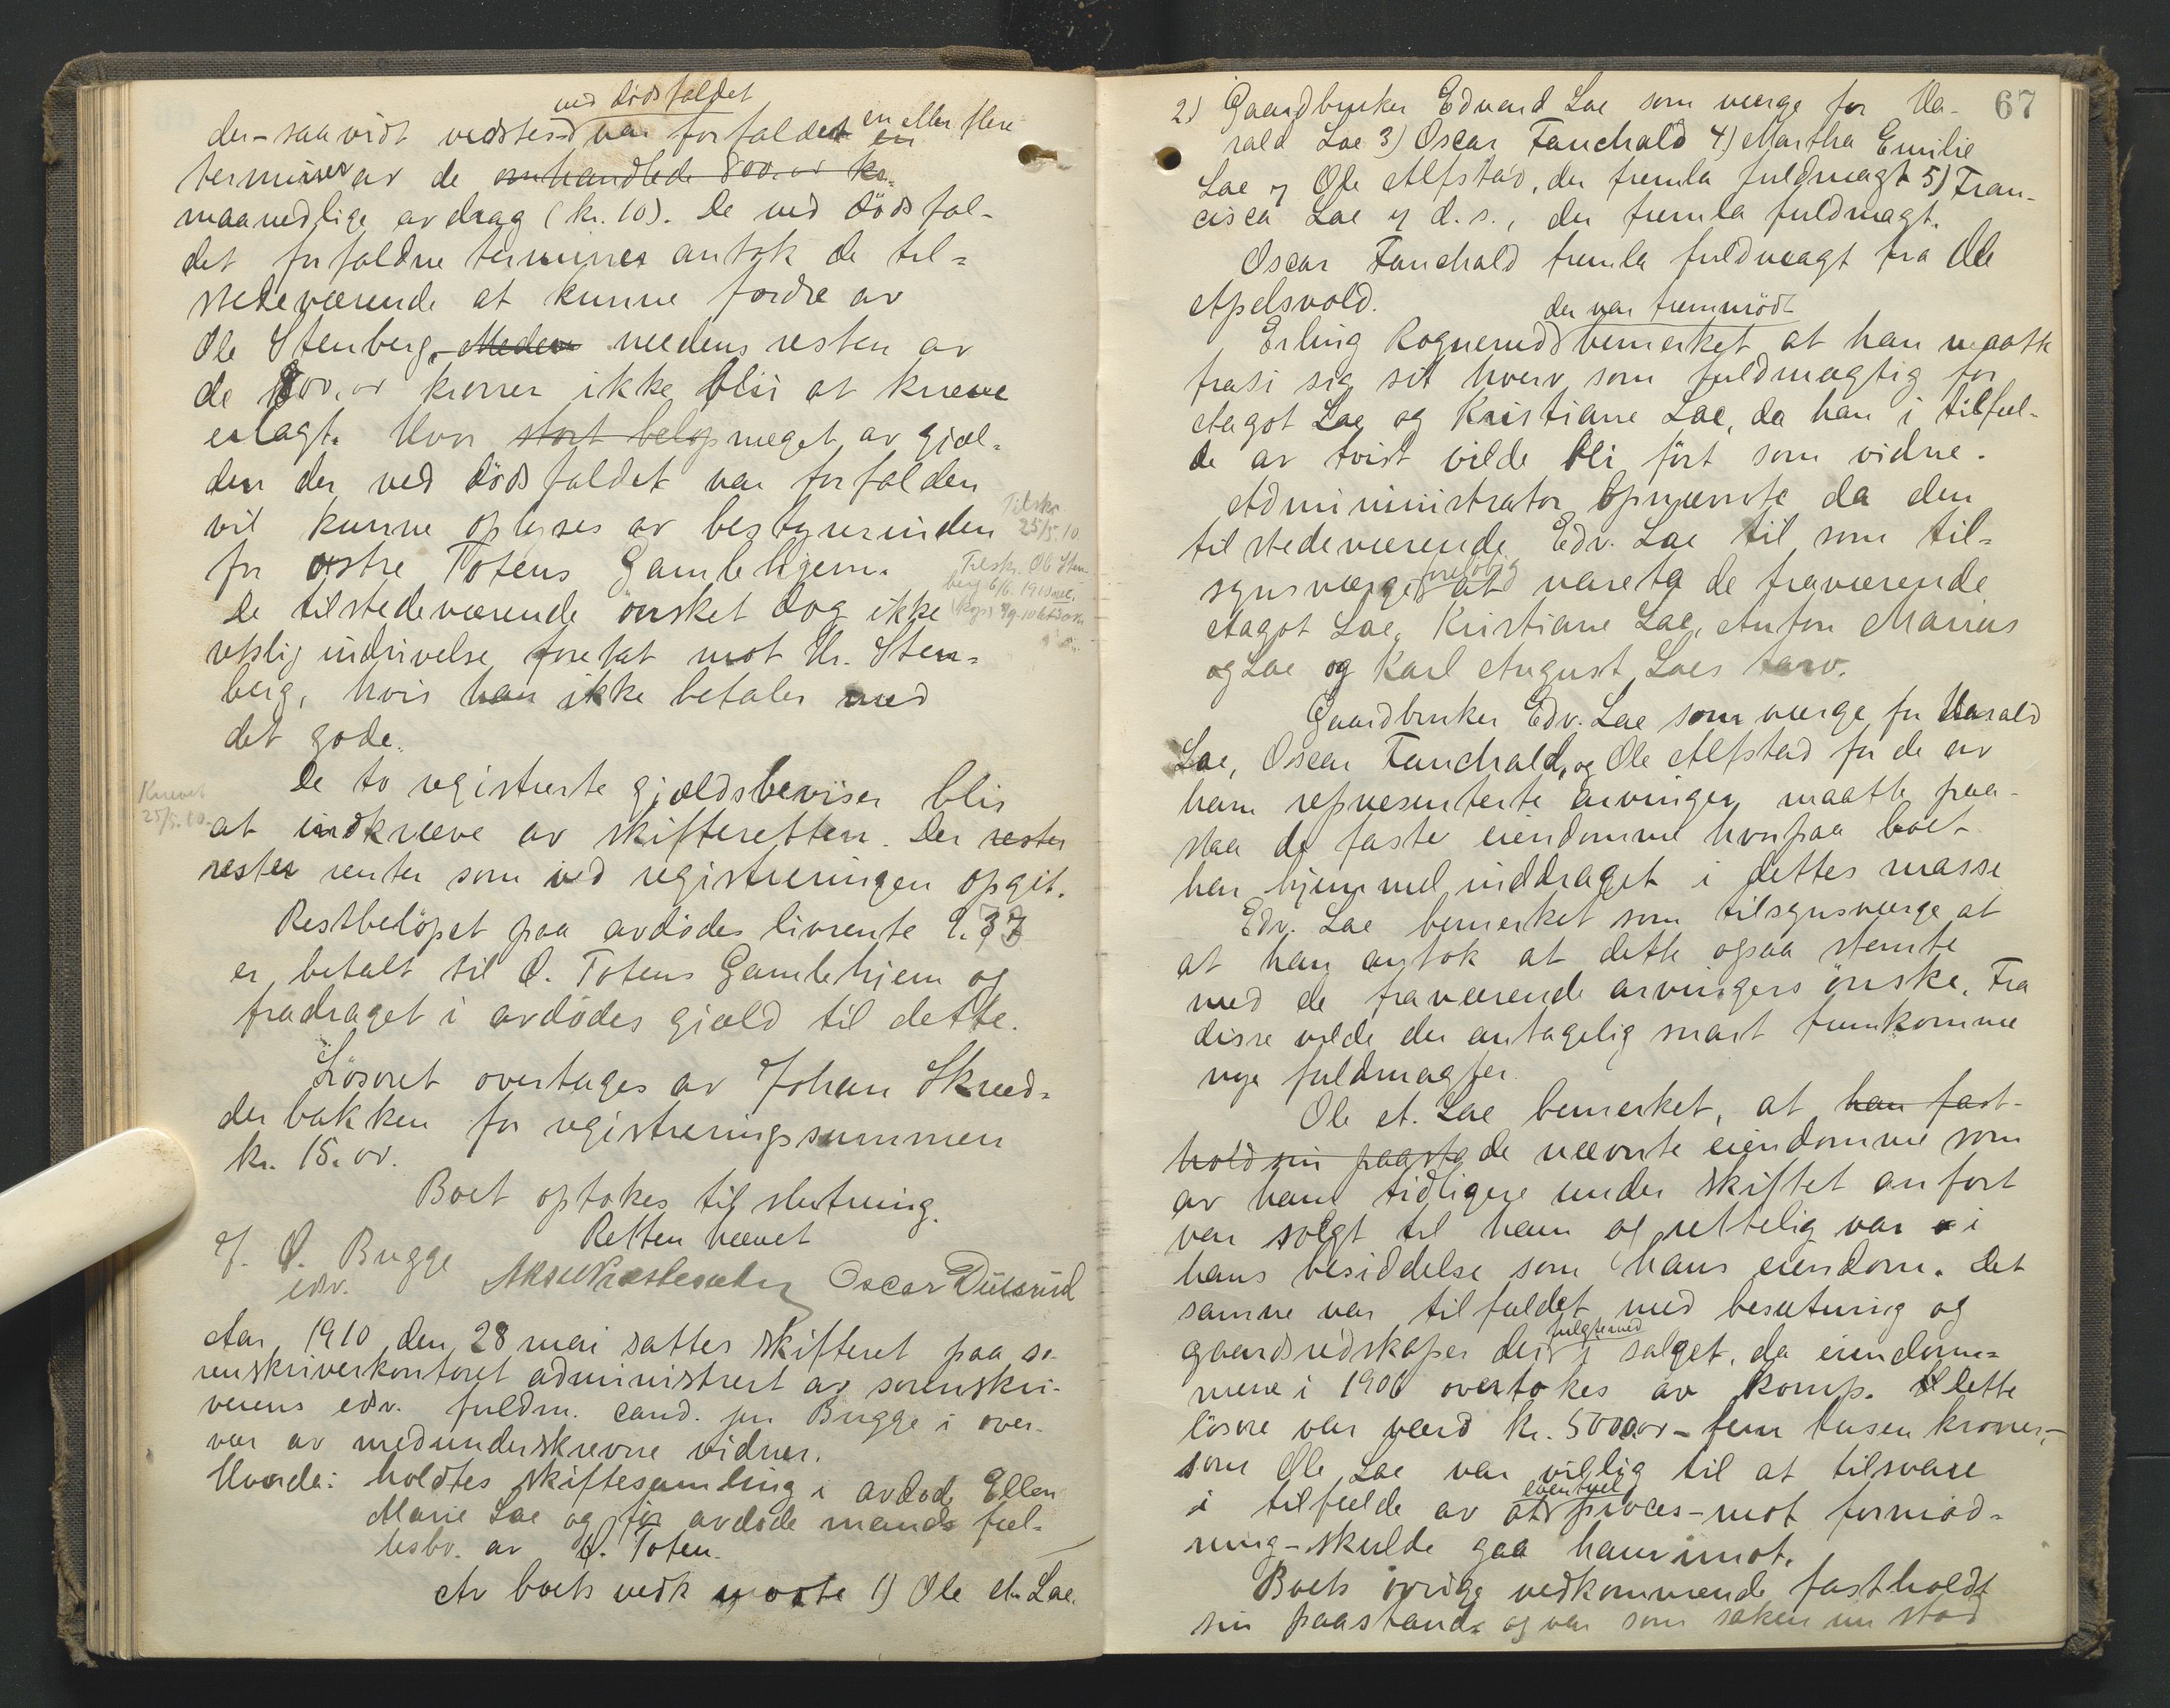 ved dödsfaldet
der – saavidt vedstod var forfaldet en eller flere
en
terminer av de omhandlede 800.00 kr.
maanedlige avdrag (kr. 10). De ved dödsfal-
det forfaldne terminer antok de til-
stedeværende at kunne fordre av
Ole Stenberg, Meden medens resten av
de 800.00 kroner ikke blir at kræve
erlagt. Hvor stort belöp meget av gjæl-
den der ved dödsfaldet var forfalden
vil kunne oplyses av bestyrerinden
for østre Totens Gamlehjem.
Tilskr.
25/5.10.
Tilskr. Ole Sten-
berg 6/6. 1910
De tilstedeværende önsket dog ikke
retslig indrivelse foretat mot Hr. Sten-
berg, hvis han ikke betaler med
det gode.
De to registrerte gjældsbeviser blir
Krævet
25/5.10.
at indkræve av skifteretten. Der rester
rester renter som ved registreringen opgit.
Restbelöpet paa avdödes livrente 9.37
er betalt til Ö. Totens Gamlehjem og
fradraget i avdödes gjæld til dette.
Lösöret overtages av Johan Skræd-
derbakken for registreringssummen
kr. 15.00.
Boet optokes til slutning.
Retten hævet
J. O. Bugge
edv.
Oscar Duesrud
Aar 1910 den 28 mai sattes skifteret paa so-
renskriverkontoret administrert av sorenskri-
verens edv. fuldm. cand. jur Bugge i over-
vær av medunderskrevne vidner.
Hvorda: holdtes skiftesamling i avdöde Ellen
Marie Lae og før avdöde mands fæl-
lesbo. av Ö. Toten.
Av boets vedk mötte 1) Ole A. Lae.
67
2) Gaardbruker Edvard Lae som værge for Ha-
rald Lae 3) Oscar Fauchald 4) Martha Emilie
Lae v Ole Alfstad, der fremla fuldmagt 5) Fran-
cisca Lae v d. s., der fremla fuldmagt.
Oscar Fauchald fremla fuldmagt fra Ole
Apelsvold.
der var fremmödt
Erling Rognerud bemerket at han maatte
frasi sig sit hverv som fuldmægtig for
Aagot Lae og Kristiane Lae, da han i tilfæl-
de av tvist vilde bli fört som vidne.
Administrator opnævnte da den
tilstedeværende Edv. Lae til som til-
synsværge foreløbig at vareta de fraværende
Aagot Lae, Kristiane Lae, Anton Marius
og Lae og Karl August Laes tarv.
Gaardbruker Edv. Lae som værge for Harald
Lae, Oscar Fauchald, og Ole Alfstad for de av
ham representerte arvinger maatte paa-
staa de faste eiendomme hvorpaa boet
har hjemmel inddraget i dettes masse
Edv. Lae bemerket som tilsynsværge at
at han antok at dette ogsaa stemte
med de fraværende arvingers önske. Fra
disse vilde der antagelig snart fremkomme
nye fuldmagter.
Ole A. Lae bemerket, at han fast-
hold sin paasta de nævnte eiendomme som
av ham tidligere under skiftet anfört
var solgt til ham og rettelig var i
hans besiddelse som hans eiendom. Det
samme var tilfældet med besætning og
fulgte med
gaardsredskaper der i salget, da eiendom-
mene i 1906 overtokes av komp. Dette
lösöre var værd kr. 5000.00 – fem tusen kroner, –
som Ole Lae var villig til at tilsvare
eventuel
i tilfælde av at proces – mot formod-
ning – skulde gaa ham imot.
Boets övrige vedkommende fastholdt
sin paastand, og var som saken nu stod